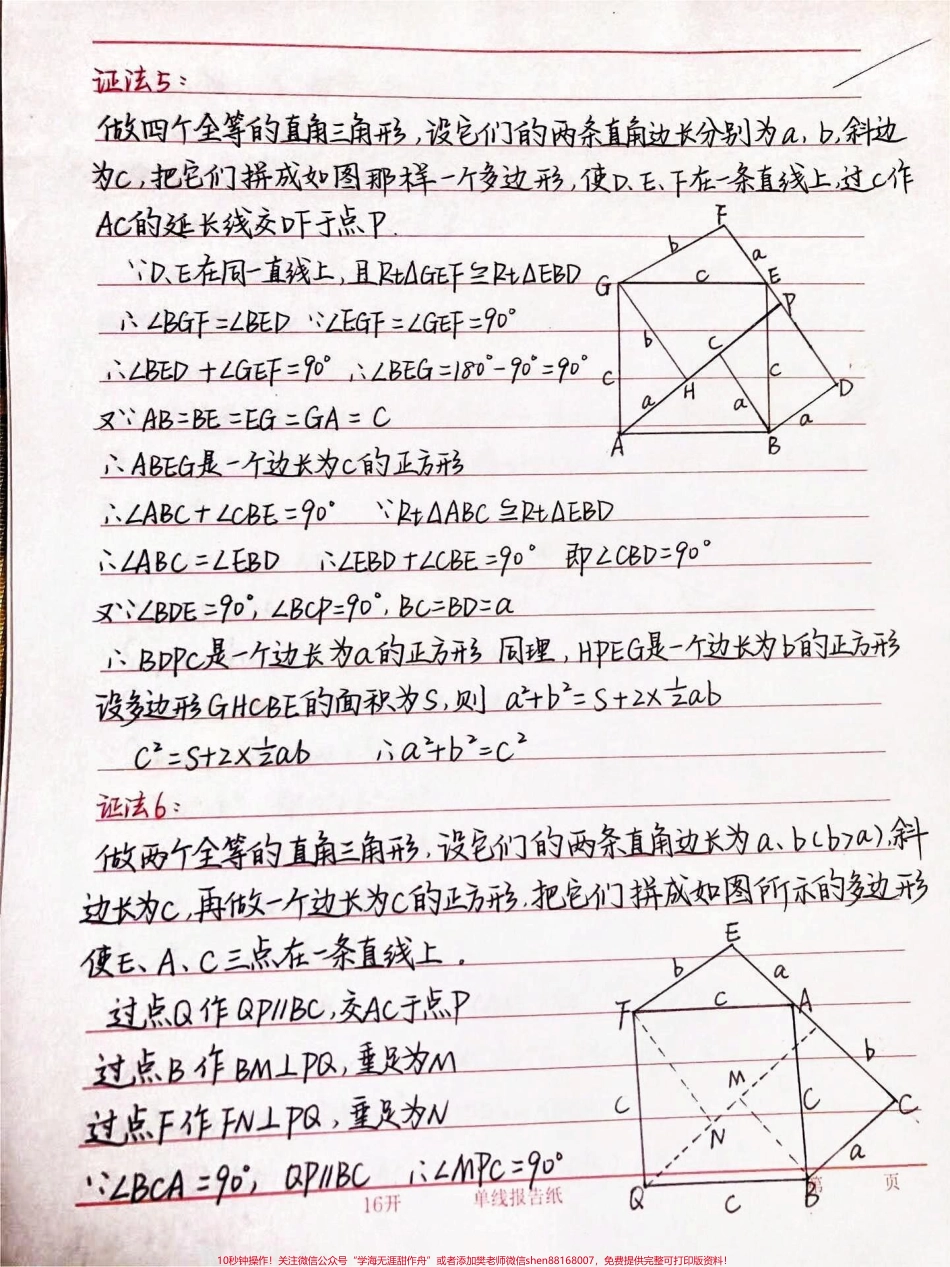 证法5:
做四个全等的直角三角形,设它们的两条直角边长分别为a、b,斜边
为c,把它们拼成如图那样一个多边形,使D、E、F在一条直线上,过C作
AC的延长线交DF于点P.
∵D、E在同一直线上,且Rt△GEF≌Rt△EBD
∴∠BGF=∠BED ∵∠EGF=∠GEF=90°
∴∠BED+∠GEF=90° ∴∠BEG=180°-90°=90°
又∵AB=BE=EG=GA=C
∴ABEG是一个边长为c的正方形
∴∠ABC+∠CBE=90° ∵Rt△ABC≌Rt△EBD
∴∠ABC=∠EBD ∴∠EBD+∠CBE=90° 即∠CBD=90°
又∵∠BDE=90°,∠BCP=90°,BC=BD=a
∴BDPC是一个边长为a的正方形 同理,HPEG是一个边长为b的正方形
设多边形GHCBE的面积为S,则 a²+b²=S+2×½ab
C²=S+2×½ab ∴a²+b²=c²
F
b
a
G
c
E
P
b
c
c
H
c
D
a
a
a
A
B
证法6:
做两个全等的直角三角形,设它们的两条直角边长为a、b(b>a),斜
边长为c,再做一个边长为c的正方形,把它们拼成如图所示的多边形
使E、A、C三点在一条直线上。
过点Q作QP∥BC,交AC于点P
过点B作BM⊥PQ,垂足为M
过点F作FN⊥PQ,垂足为N
∵∠BCA=90°,QP∥BC ∴∠MPC=90°
E
b
a
F
c
A
b
M
C
C
C
N
a
Q
C
B
16开 单线报告纸 第 页
10秒钟操作!关注微信公众号“学海无涯甜作舟”或者添加樊老师微信shen88168007,免费提供完整可打印版资料!